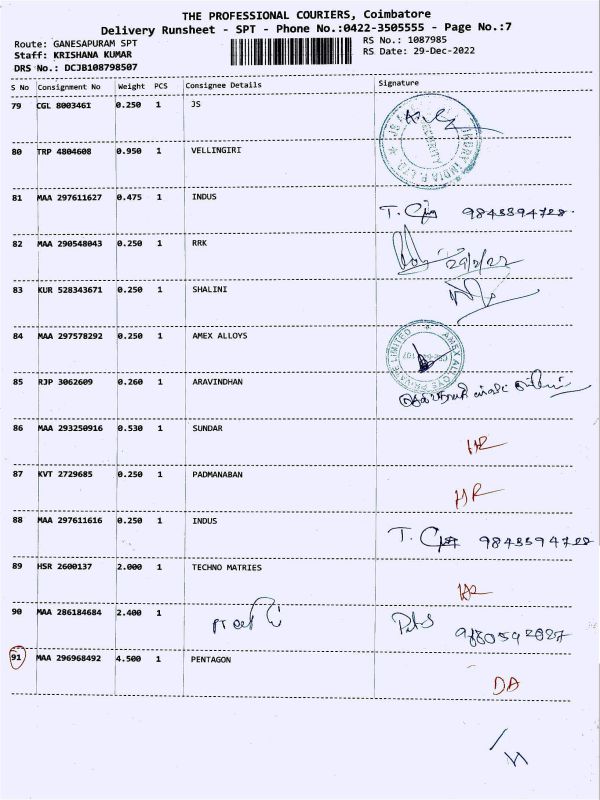 THE PROFESSIONAL COURIERS, Coimbatore
Delivery Runsheet - SPT - Phone No.:0422-3505555 - Page No.:7
Route: GANESAPURAM SPT
RS No.: 1087985
Staff: KRISHANA KUMAR
RS Date: 29-Dec-2022
DRS No.: DCJB108798507
S No Consignment No Weight PCS Consignee Details Signature
79 CGL 8003461 0.250 1 JS
80 TRP 4804608 0.950 1 VELLINGIRI
81 MAA 297611627 0.475 1 INDUS
82 MAA 290548043 0.250 1 RRK
83 KUR 528343671 0.250 1 SHALINI
84 MAA 297578292 0.250 1 AMEX ALLOYS
AMEX ALLOYS PRIVATE LIMITED
85 RJP 3062609 0.260 1 ARAVINDHAN
86 MAA 293250916 0.530 1 SUNDAR
87 KVT 2729685 0.250 1 PADMANABAN
HR
88 MAA 297611616 0.250 1 INDUS
9843594728
89 HSR 2600137 2.000 1 TECHNO MATRIES
90 MAA 286184684 2.400 1
91 MAA 296968492 4.500 1 PENTAGON
DA